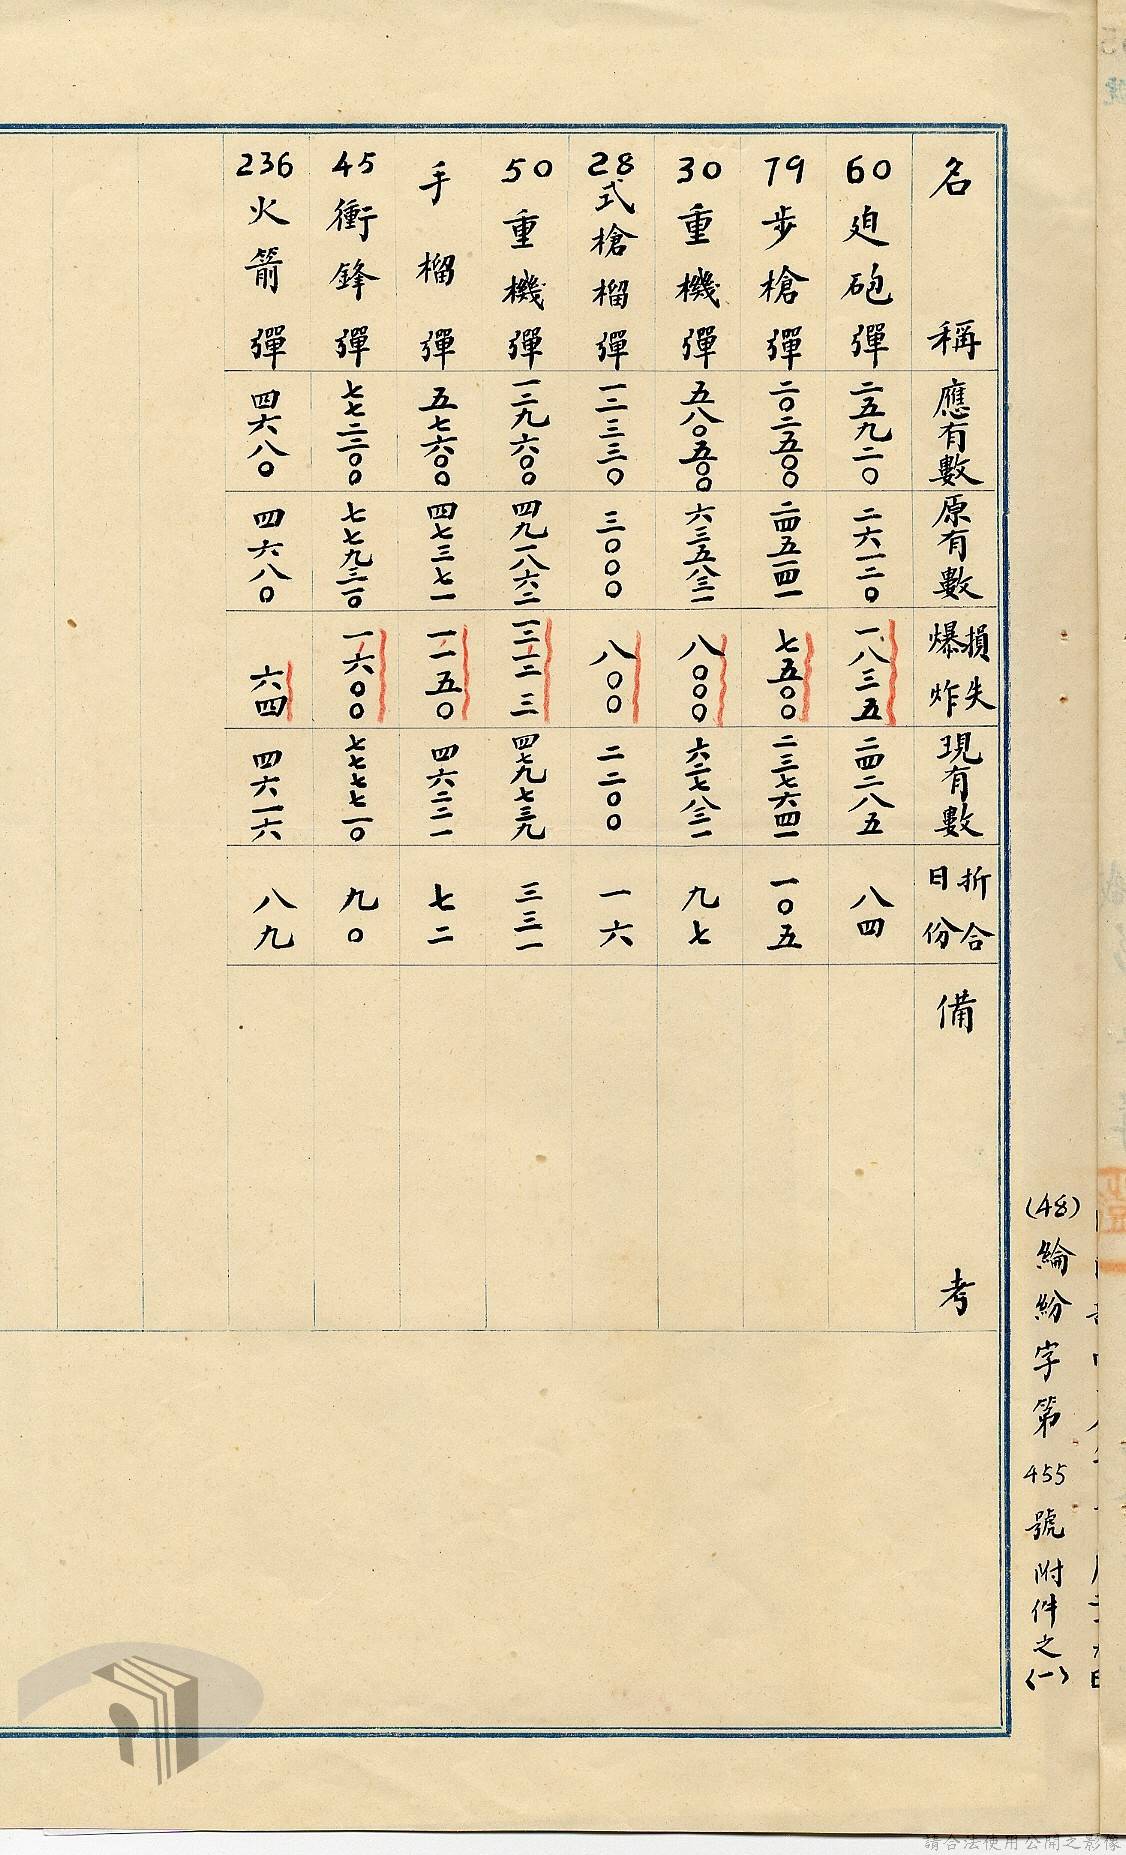 (48)綸紛字第455號附件之(一)
名稱 應有數 原有數 損失爆炸 現有數 折合日份 備考
60迫砲彈 二五九二0 二六一二0 一八三五 二四二八五 八四
79步槍彈 二0二五00 二四五一四一 七五00 二三七六四一 一0五
30重機彈 五八0五00 六三五八三一 八000 六二七八三一 九七
28式槍榴彈 一二三三0 三000 八00 二二00 一六
50重機彈 一二九六00 四九一八六二 一二一二三 四七九七三九 三三一
手榴彈 五七六00 四七三七一 一一五0 四六二二一 七二
45衝鋒彈 七七二二00 七七九三一0 一六00 七七七七一0 九0
236火箭彈 四六八0 四六八0 六四 四六一六 八九
請合法使用公開之影像